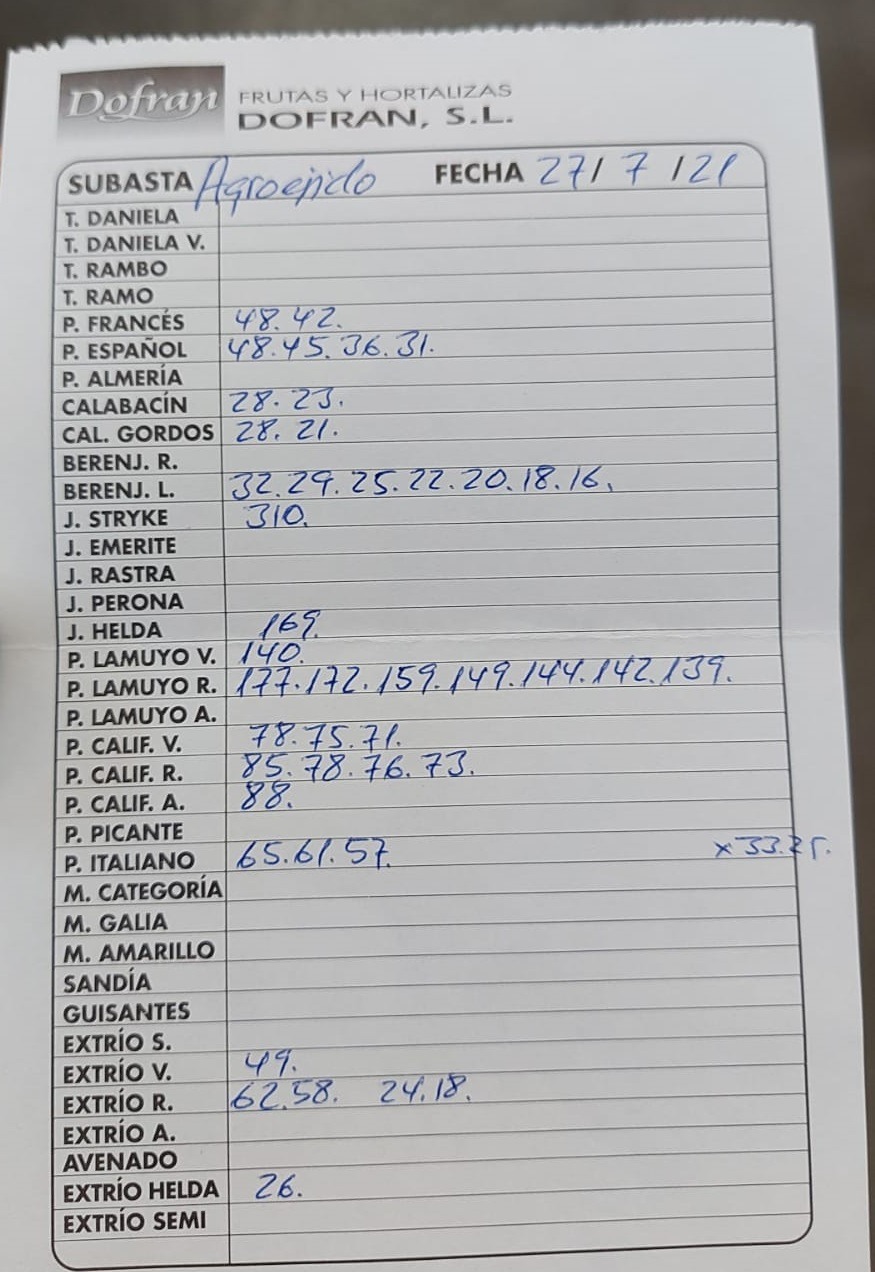 Dofran FRUTAS Y HORTALIZAS
DOFRAN, S.L.
SUBASTA Agroejido FECHA 27/ 7 /21
T. DANIELA
T. DANIELA V.
T. RAMBO
T. RAMO
P. FRANCÉS 48. 42.
P. ESPAÑOL 48.45.36.31.
P. ALMERÍA
CALABACÍN 28. 23.
CAL. GORDOS 28. 21.
BERENJ. R.
BERENJ. L. 32.29.25.22.20.18.16.
J. STRYKE 310.
J. EMERITE
J. RASTRA
J. PERONA
J. HELDA 169.
P. LAMUYO V. 140.
P. LAMUYO R. 177.172.159.149.144.142.139.
P. LAMUYO A.
P. CALIF. V. 78.75.71.
P. CALIF. R. 85.78.76.73.
P. CALIF. A. 88.
P. PICANTE
P. ITALIANO 65.61.57.
M. CATEGORÍA
M. GALIA
M. AMARILLO
SANDÍA
GUISANTES
EXTRÍO S.
EXTRÍO V. 49.
EXTRÍO R. 62.58. 24.18.
EXTRÍO A.
AVENADO
EXTRÍO HELDA 26.
EXTRÍO SEMI